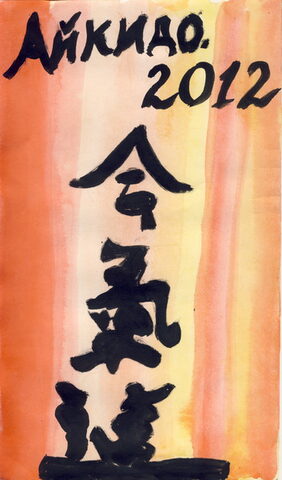 Айкидо.
2012
合
氣
道